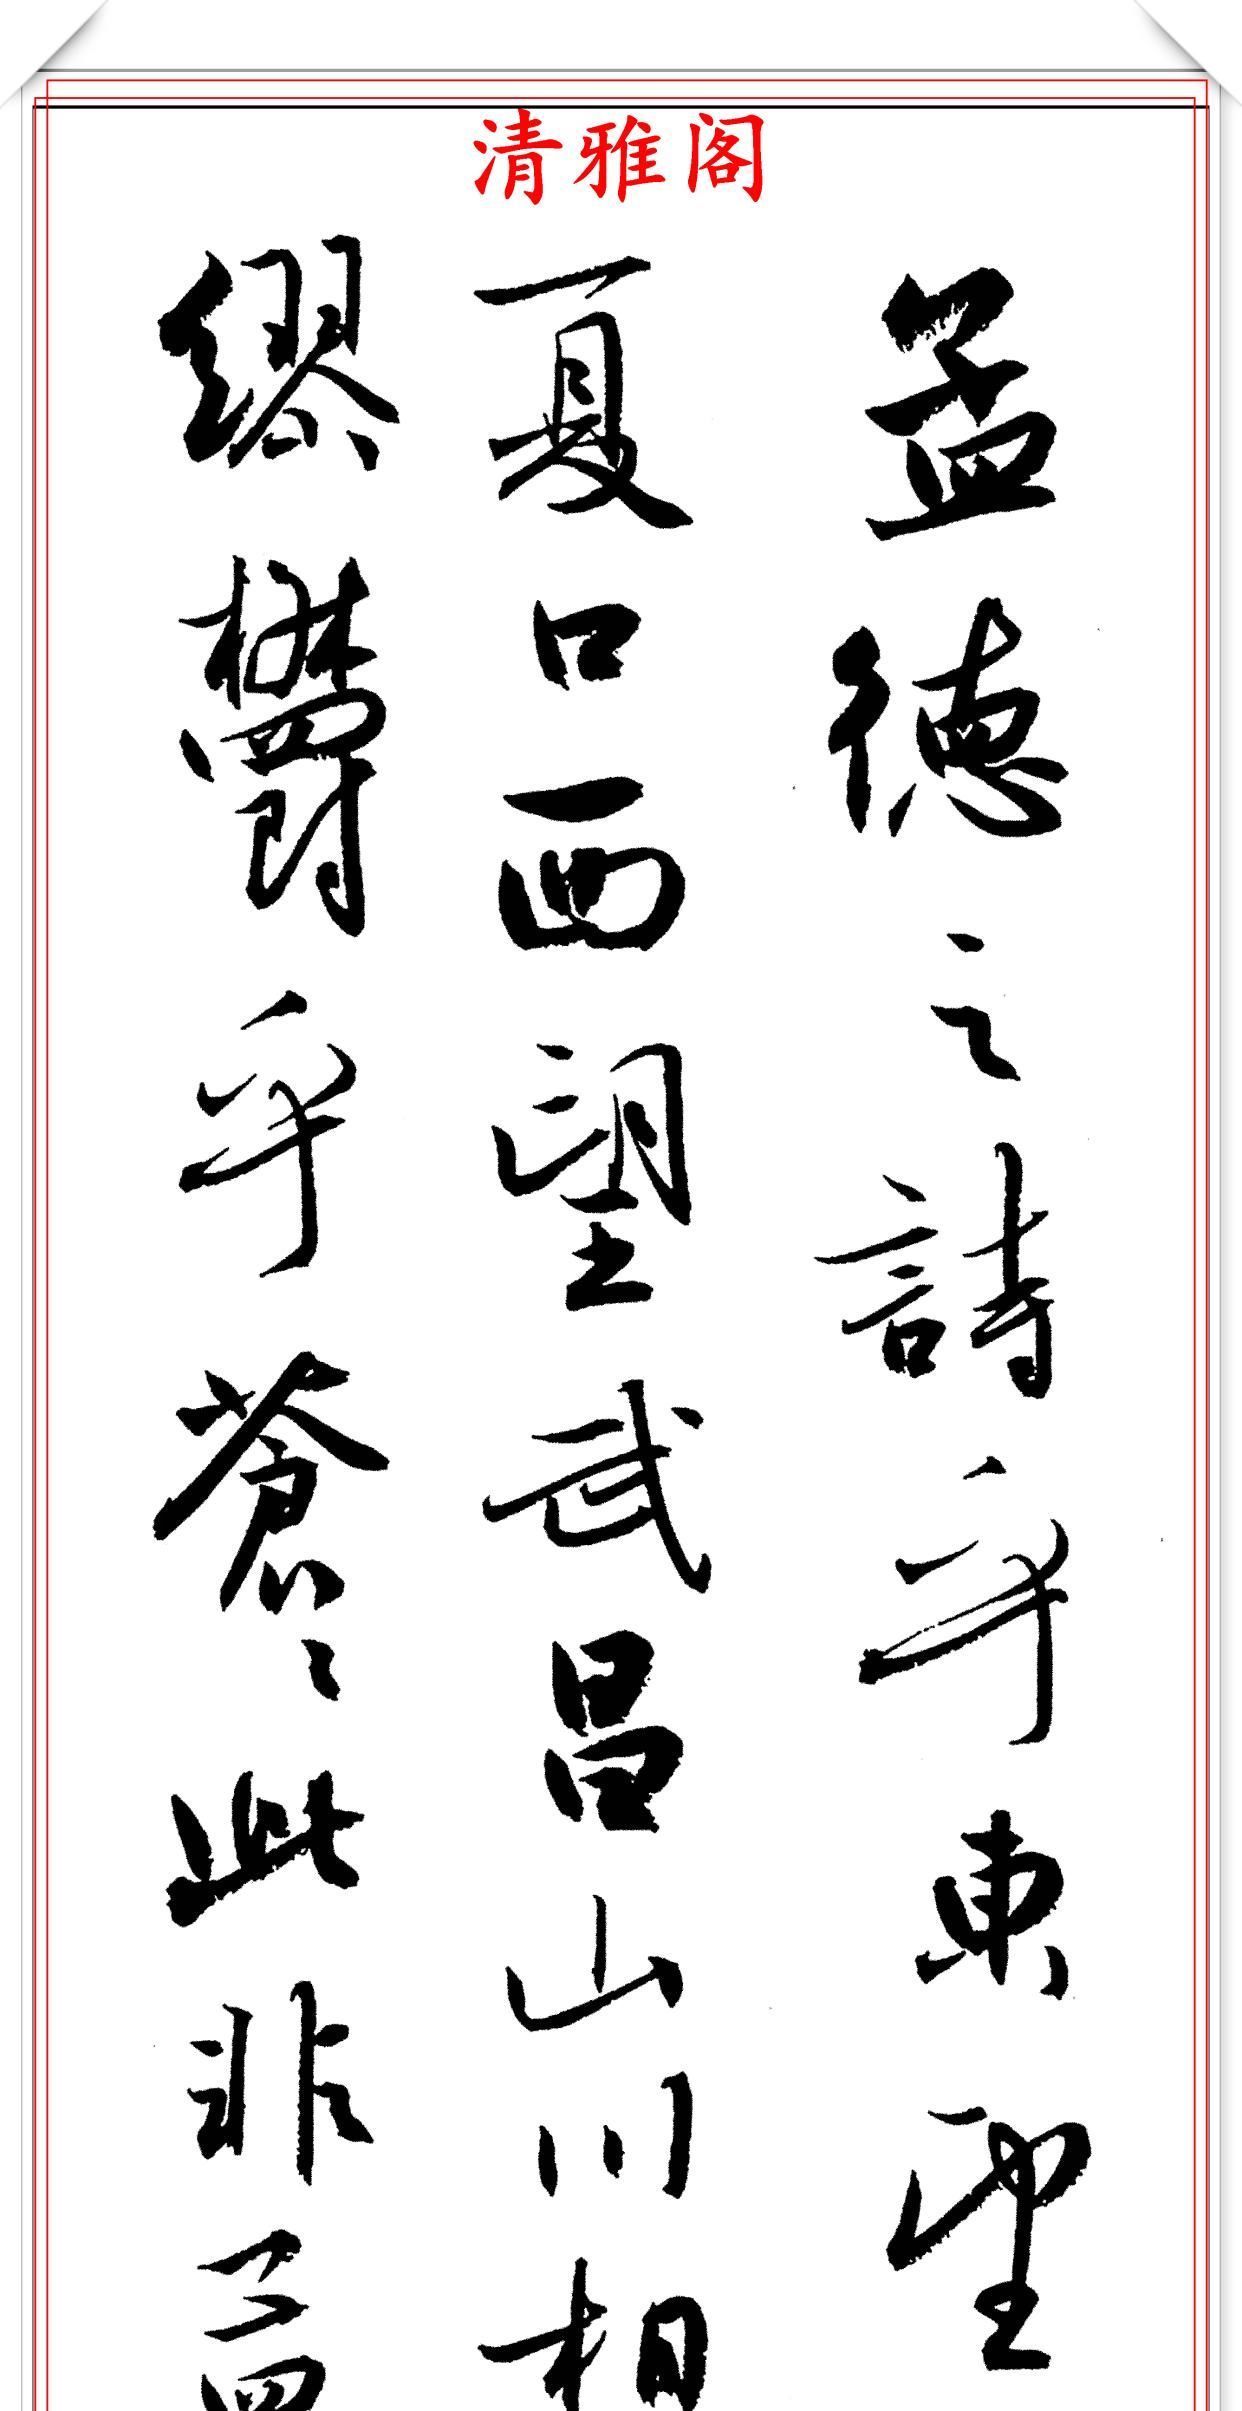 清雅阁
孟德之詩乎東望
夏口西望武昌山川相
繆鬱乎蒼〻此非孟